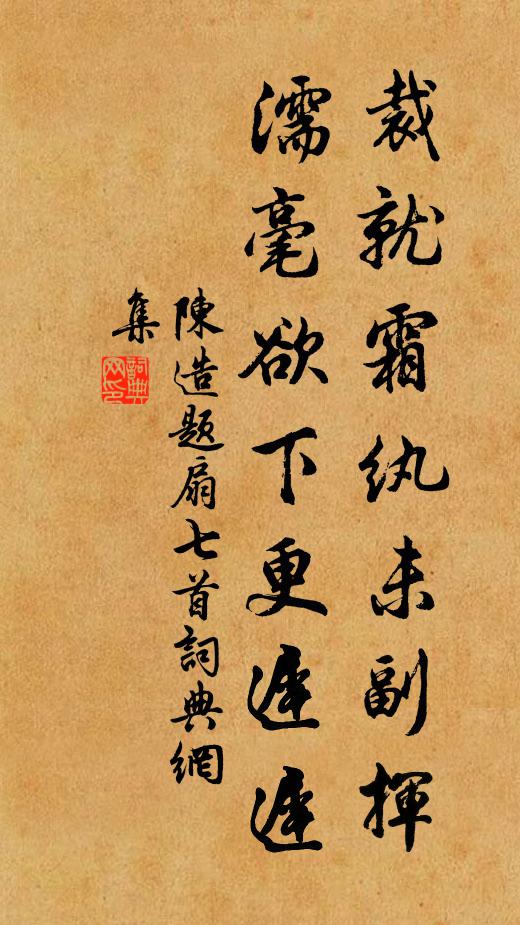 裁就霜紈未副揮
濡毫欲下更遲遲
陳造題扇七首詞典網
集
詞典
网印